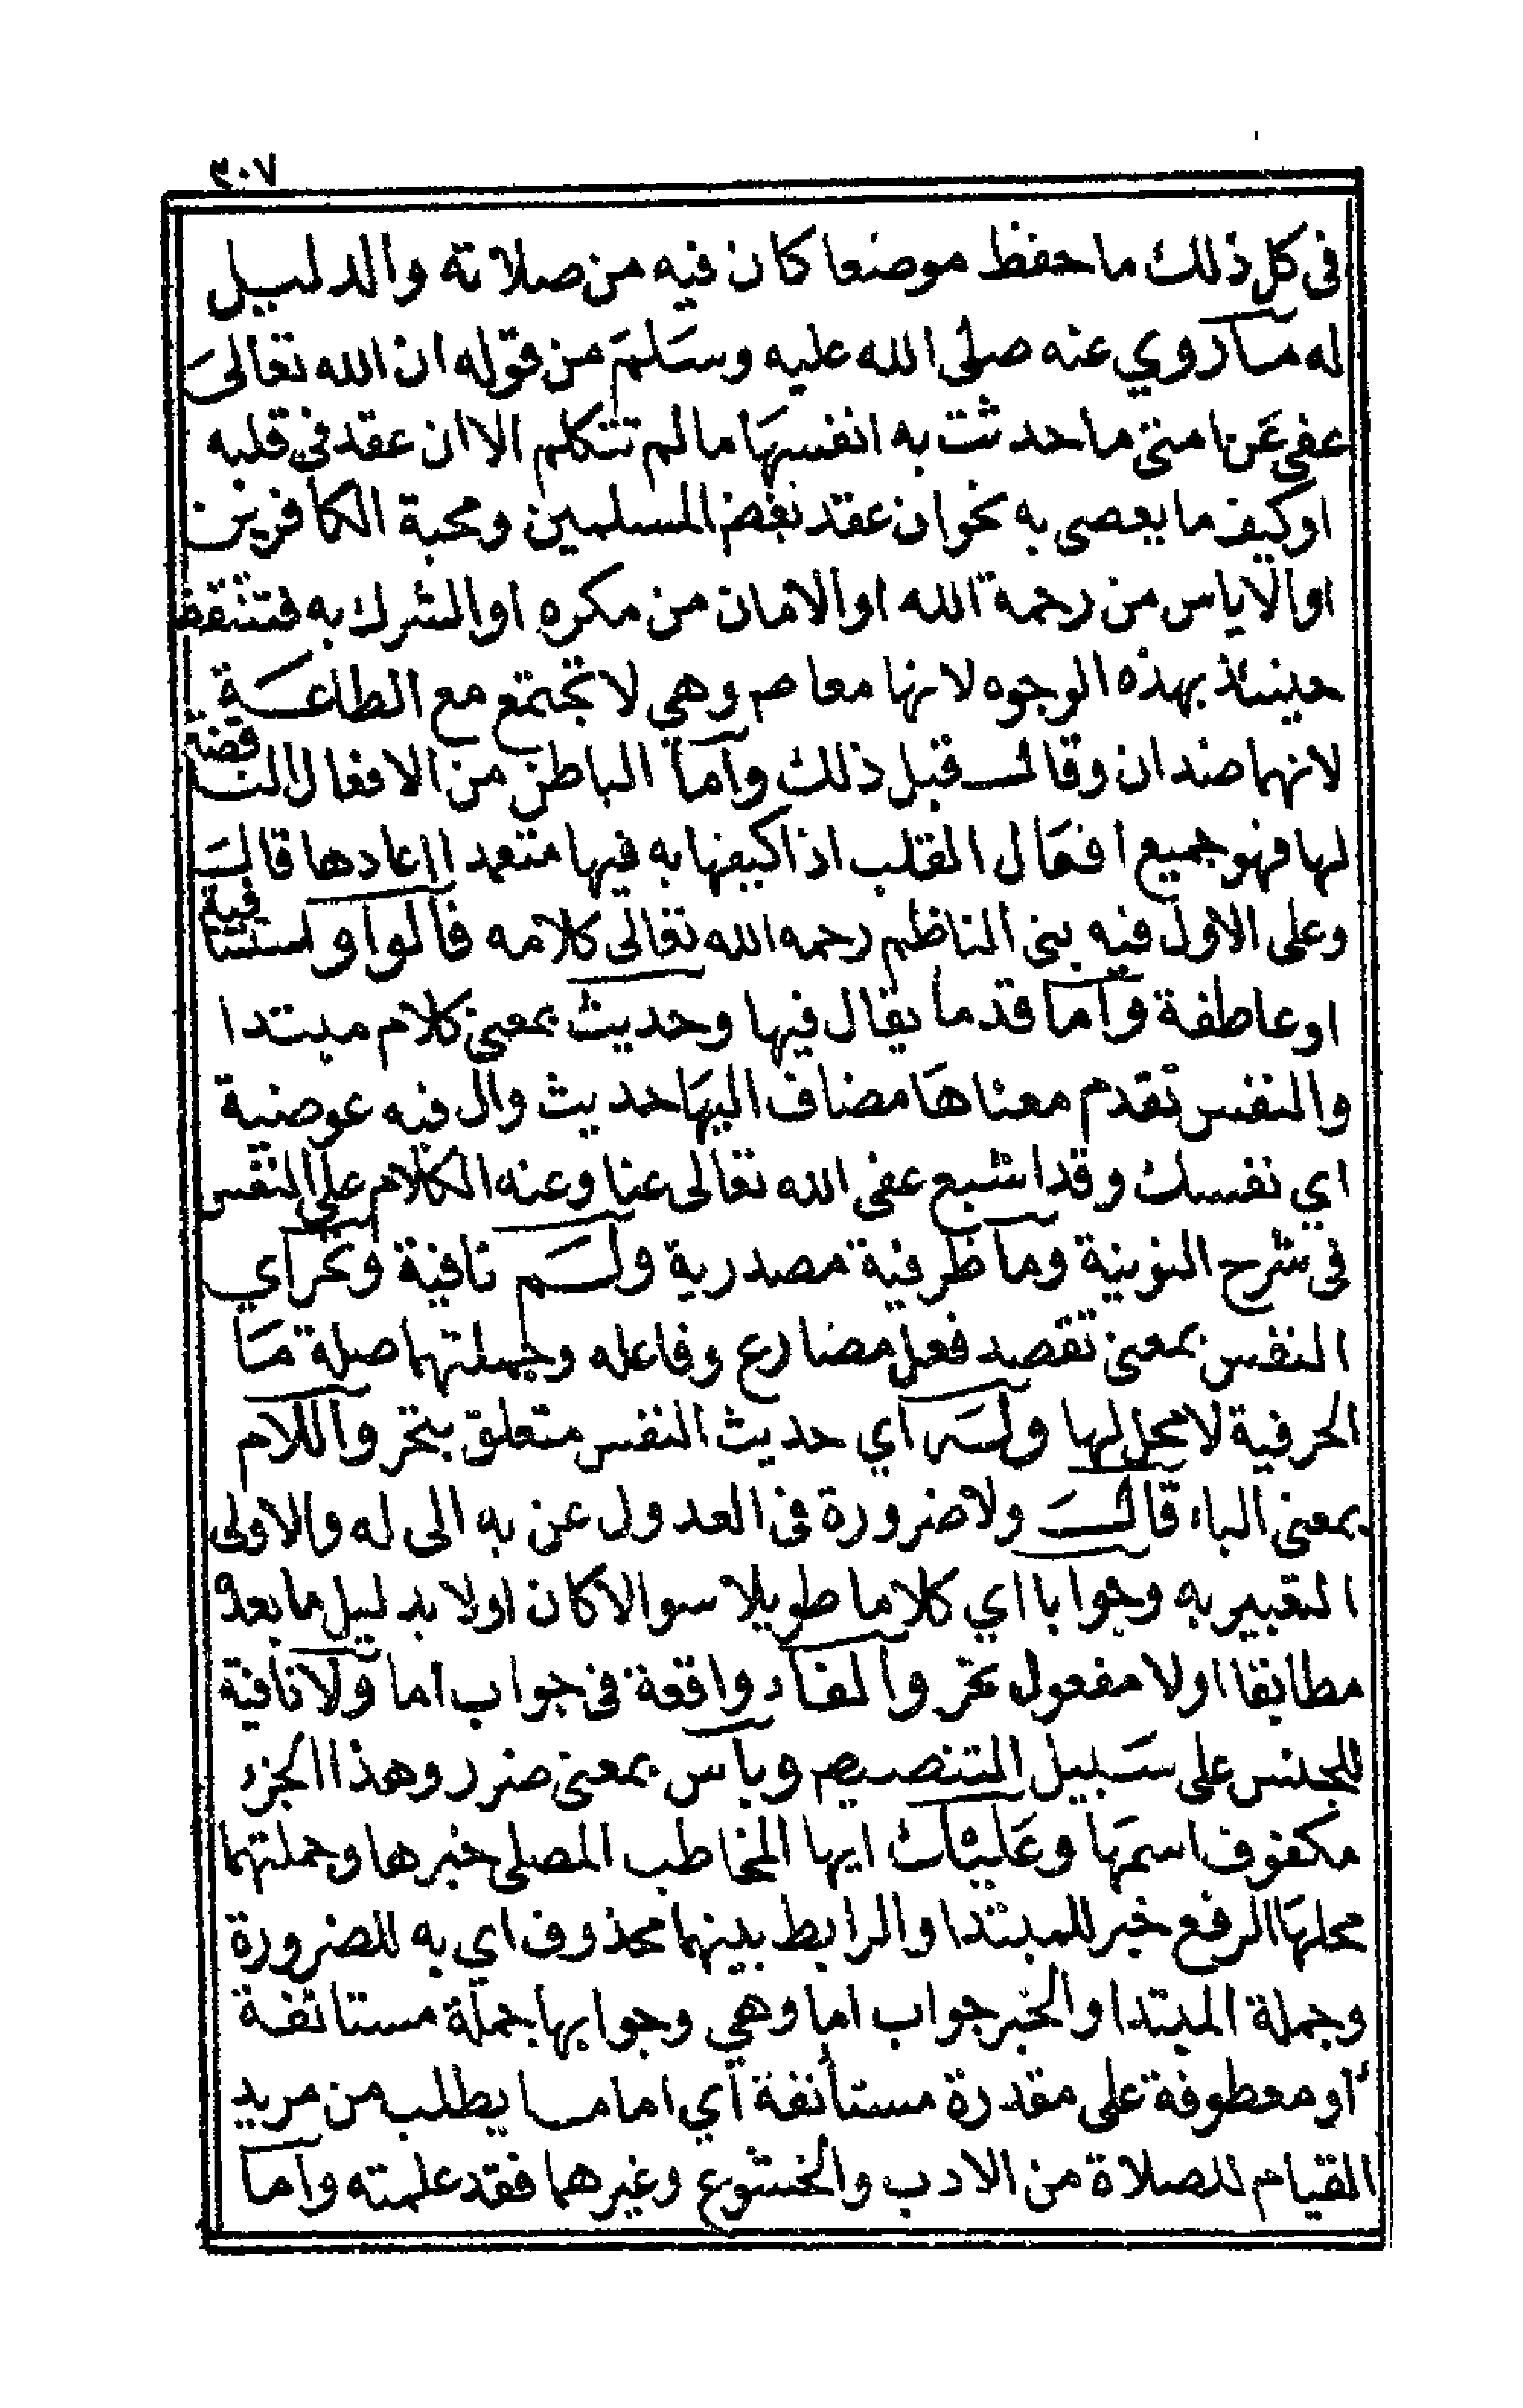 ٣٠٧
فى كل ذلك ما حفظ موضعا كان فيه من صلاته والدليل
له ما روي عنه صلى الله عليه وسلم من قوله ان الله تعالى
عفى عن امتى ما حدثت به انفسها ما لم تتكلم الا ان عقد فى قلبه
او كيف ما يعصى به نحو ان عقد بغض المسلمين ومحبة الكافرين
او الاياس من رحمة الله او الامان من مكره او الشرك به فتنتقض
حينئذ بهذه الوجوه لانها معاص وهي لا تجتمع مع الطاعة
لانهما ضدان وقال قبل ذلك وأما الباطن من الافعال الناقضة
لها فهو جميع افعال القلب اذا كيفها به فيها متعمدا اعادها قال
وعلى الاول فيه بنى الناظم رحمه الله تعالى كلامه فالواو استئنافية
او عاطفة وأما قد ما يقال فيها وحديث بمعنى كلام مبتدا
والنفس تقدم معناها مضاف اليها حديث وال فيه عوضية
اي نفسك وقد اشبع عفى الله تعالى عنا وعنه الكلام على النفس
فى شرح النونية وما ظرفية مصدرية ولم نافية وتحر أي
النفس بمعنى تقصد فعل مضارع وفاعله وجملتهما صلة ما
الحرفية لا محل لها وله أي حديث النفس متعلق بتحر واللام
بمعنى الباء قال ولا ضرورة فى العدول عن به الى له والاولى
التعبير به وجوابا اي كلاما طويلا سوالا كان اولا بدليل ما بعده
مطابقا اولا مفعول تحر والفاء واقعة فى جواب اما ولا نافية
للجنس على سبيل التنصيص وبأس بمعنى ضرر وهذا الجزء
مكفوف اسمها وعليك ايها المخاطب المصلى خبرها وجملتهما
محلها الرفع خبر للمبتدا والرابط بينهما محذوف اي به للضرورة
وجملة المبتدا والخبر جواب اما وهي وجوابها جملة مستانفة
او معطوفة على مقدرة مستأنفة أي اما ما يطلب من مريد
القيام للصلاة من الادب والخشوع وغيرهما فقد علمته وأما